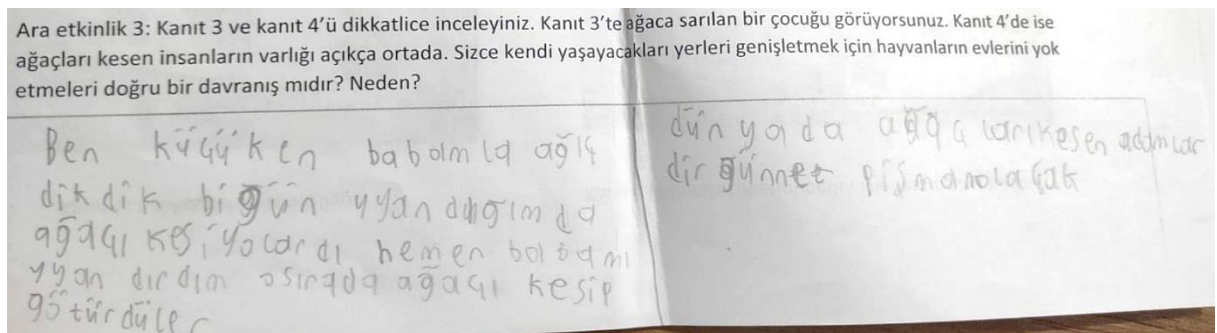 Ara etkinlik 3: Kanıt 3 ve kanıt 4'ü dikkatlice inceleyiniz. Kanıt 3'te ağaca sarılan bir çocuğu görüyorsunuz. Kanıt 4'de ise
ağaçları kesen insanların varlığı açıkça ortada. Sizce kendi yaşayacakları yerleri genişletmek için hayvanların evlerini yok
etmeleri doğru bir davranış mıdır? Neden?
Ben küçükken babamla ağıç
dikdik bigün uyandığımda
ağaçı kesiyolardı hemen babamı
uyandırdım osırada ağaçı kesip
götürdüler
dünyada ağaçlarıkesen adamlar
bir günnet pişmanolaçak